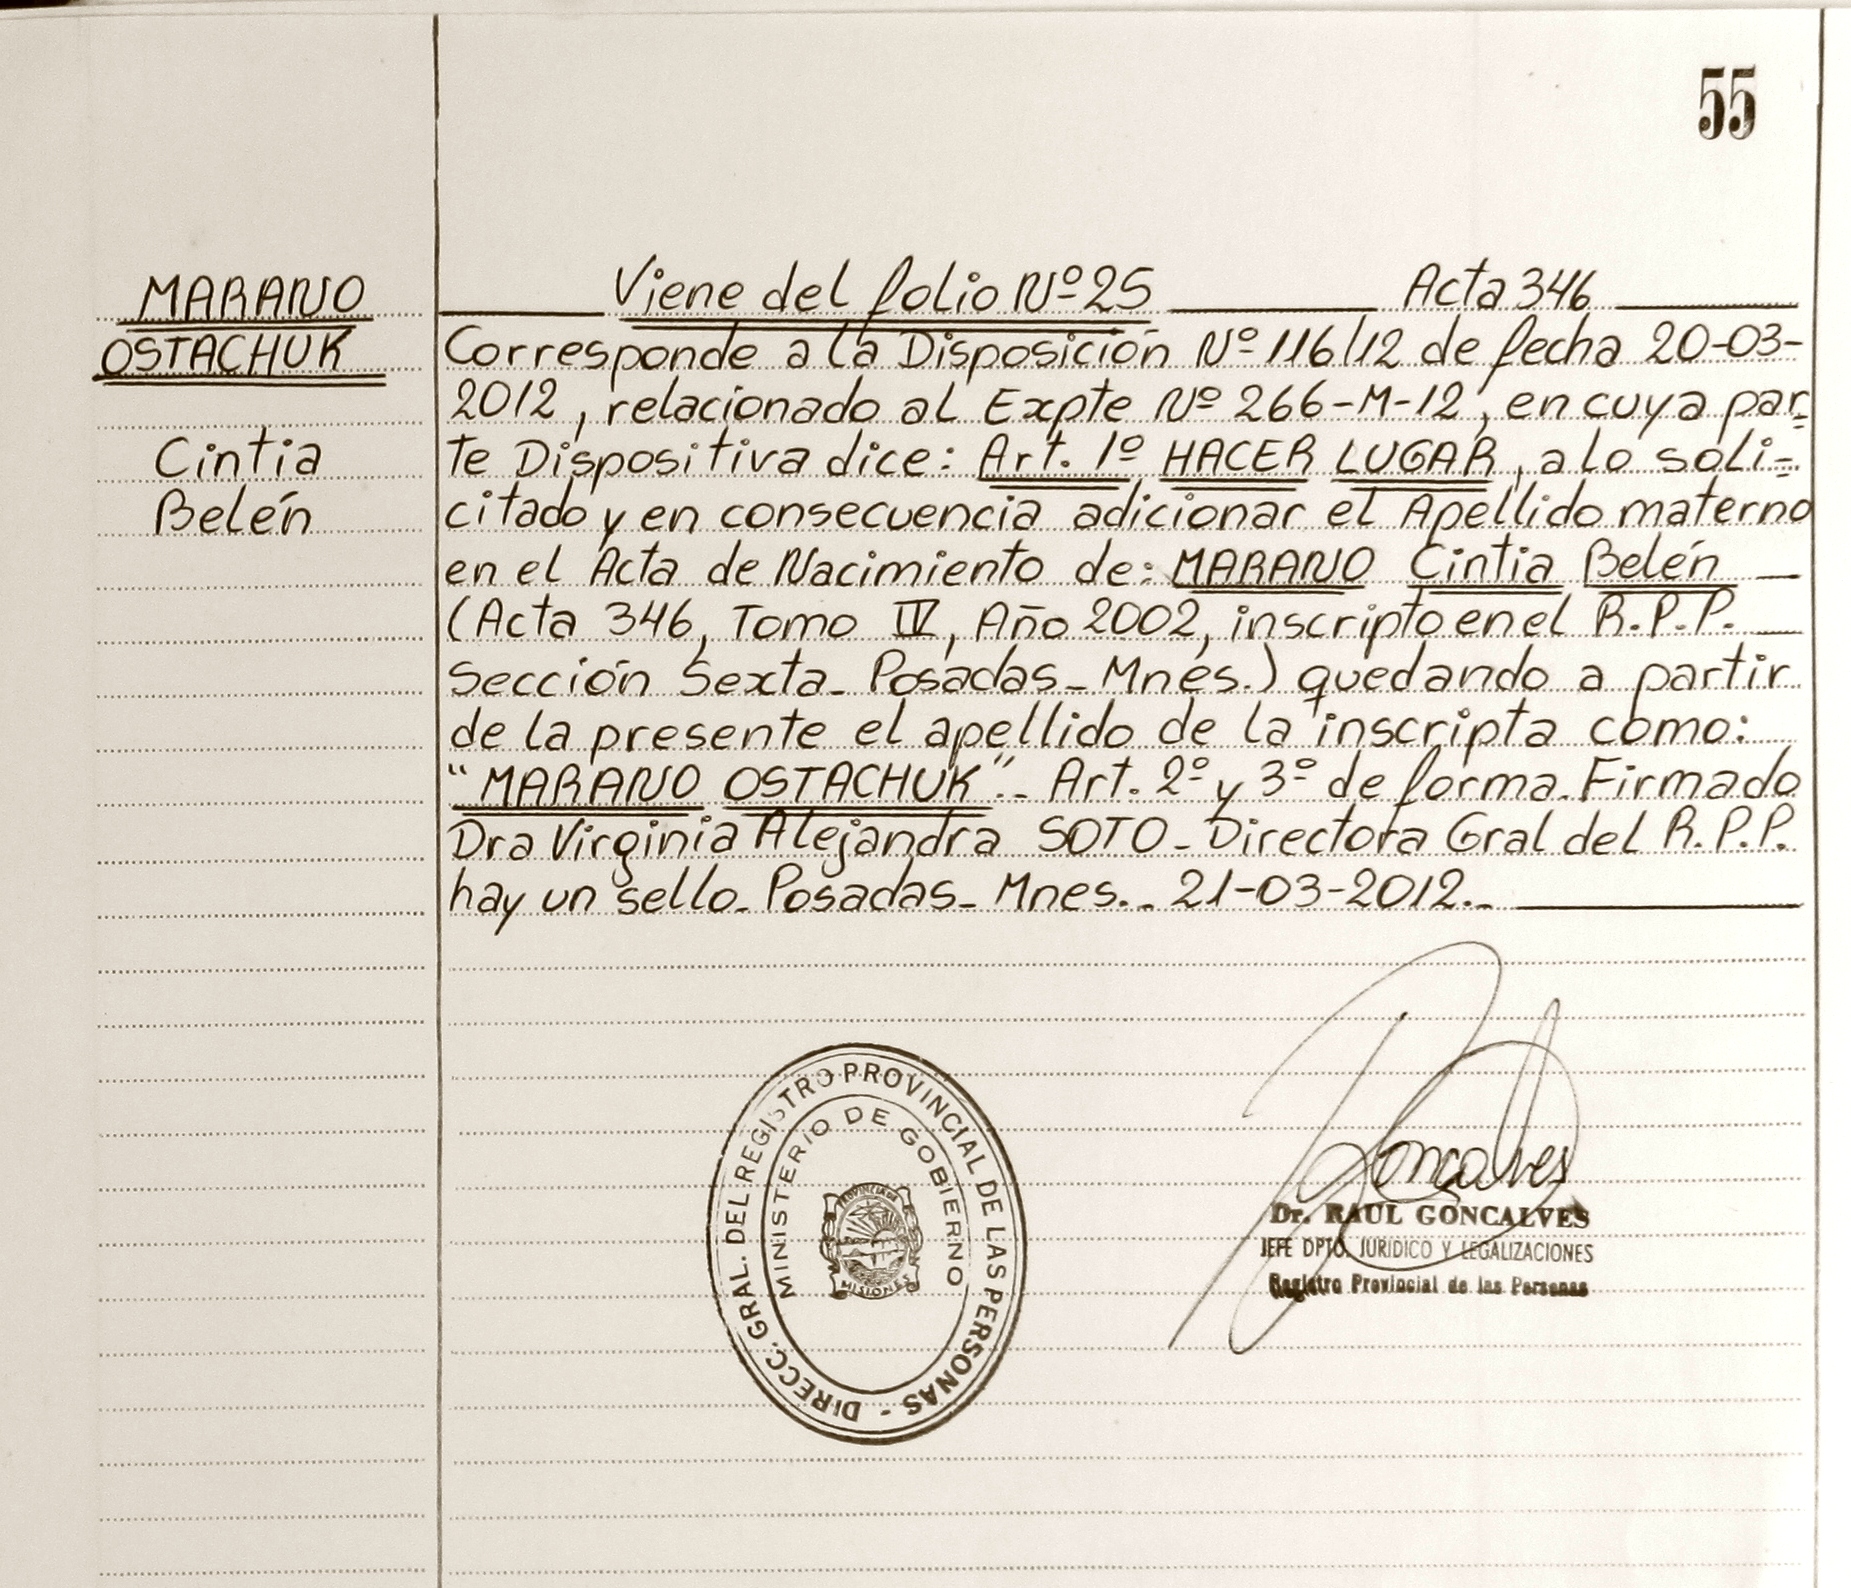 55
MARANO
OSTACHUK
Cintia
Belén
Viene del folio Nº 25 Acta 346
Corresponde a la Disposición Nº 116/12 de fecha 20-03-
2012, relacionado al Expte Nº 266-M-12, en cuya par-
te Dispositiva dice: Art. 1º HACER LUGAR, a lo soli-
citado y en consecuencia adicionar el Apellido materno
en el Acta de Nacimiento de: MARANO Cintia Belén
(Acta 346, Tomo IV, Año 2002, inscripto en el R.P.P.
Sección Sexta- Posadas- Mnes.) quedando a partir
de la presente el apellido de la inscripta como:
"MARANO OSTACHUK".- Art. 2º y 3º de forma. Firmado
Dra Virginia Alejandra SOTO- Directora Gral del R.P.P.
hay un sello- Posadas- Mnes.- 21-03-2012.-
DIRECC. GRAL. DEL REGISTRO PROVINCIAL DE LAS PERSONAS -
MINISTERIO DE GOBIERNO
PROVINCIA DE
MISIONES
Gonçalves
Dr. RAUL GONCALVES
JEFE DPTO. JURIDICO Y LEGALIZACIONES
Registro Provincial de las Personas